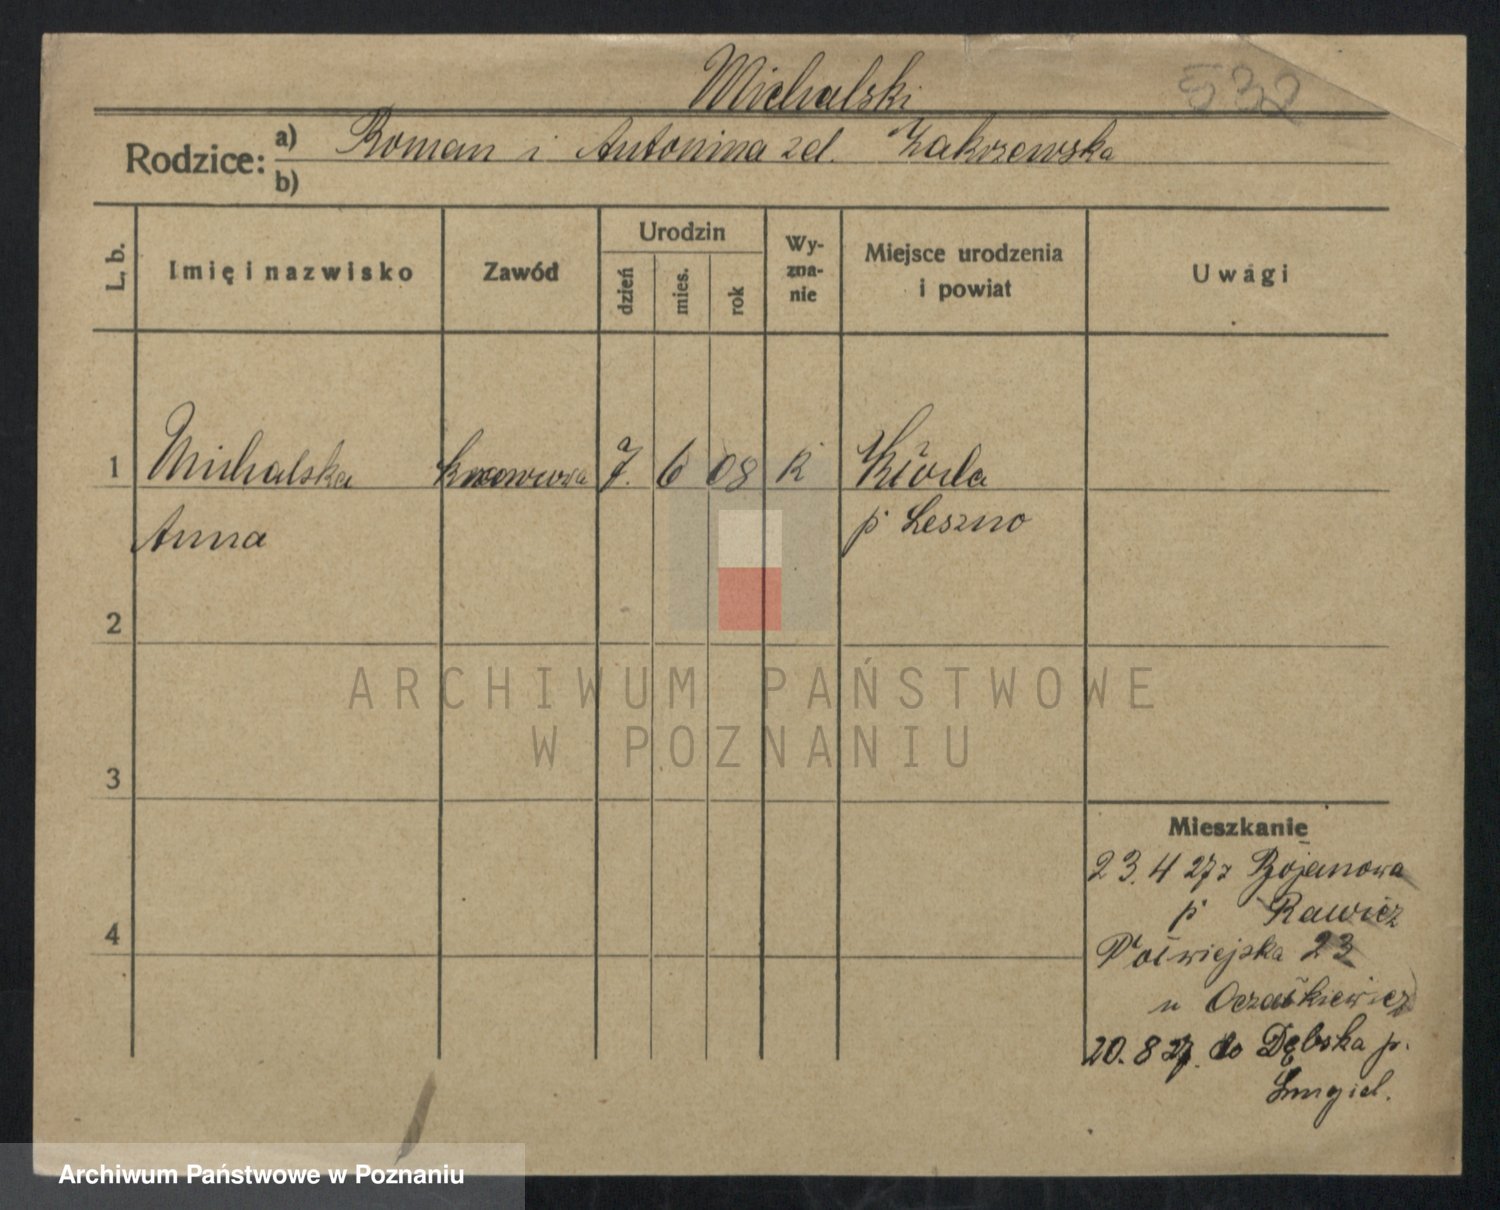 Michalski
532
Rodzice: a) Roman i Antonina zd. Zakrzewska
b)
L. b.
Imię i nazwisko
Zawód
Urodzin
dzień
mies.
rok
Wy-
zna-
nie
Miejsce urodzenia
i powiat
Uwagi
1 Michalska krawcowa 7. 6 08 k Kłoda
Anna p Leszno
2
3
4
Mieszkanie
23.4 27 z Bojanowa
p Rawicz
23
u
20.8 27. do Dębska p.
Śmigiel.
ARCHIWUM PAŃSTWOWE
W POZNANIU
Archiwum Państwowe w Poznaniu